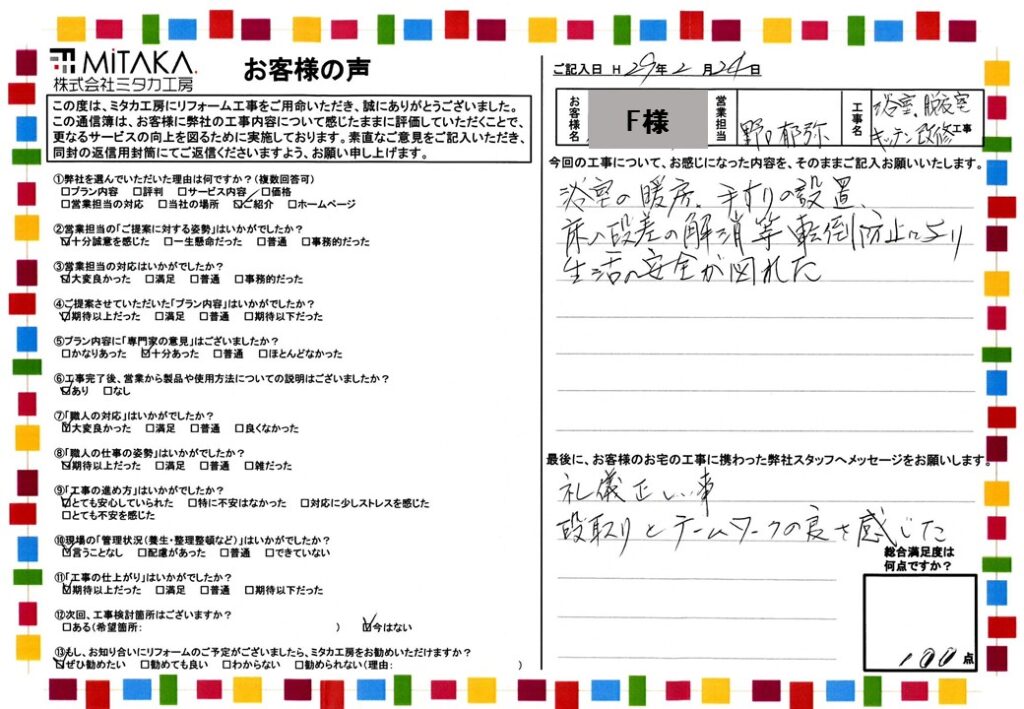 MiTAKA.
株式会社ミタカ工房
お客様の声
この度は、ミタカ工房にリフォーム工事をご用命いただき、誠にありがとうございました。
この通信簿は、お客様に弊社の工事内容について感じたままに評価していただくことで、
更なるサービスの向上を図るために実施しております。素直なご意見をご記入いただき、
同封の返信用封筒にてご返信くださいますよう、お願い申し上げます。
①弊社を選んでいただいた理由は何ですか?(複数回答可)
□プラン内容 □評判 □サービス内容 □価格
□営業担当の対応 □当社の場所 ☑ご紹介 □ホームページ
②営業担当の「ご提案に対する姿勢」はいかがでしたか?
☑十分誠意を感じた □一生懸命だった □普通 □事務的だった
③営業担当の対応はいかがでしたか?
☑大変良かった □満足 □普通 □事務的だった
④ご提案させていただいた「プラン内容」はいかがでしたか?
☑期待以上だった □満足 □普通 □期待以下だった
⑤プラン内容に「専門家の意見」はございましたか?
□かなりあった ☑十分あった □普通 □ほとんどなかった
⑥工事完了後、営業から製品や使用方法についての説明はございましたか?
☑あり □なし
⑦「職人の対応」はいかがでしたか?
☑大変良かった □満足 □普通 □良くなかった
⑧「職人の仕事の姿勢」はいかがでしたか?
☑期待以上だった □満足 □普通 □雑だった
⑨「工事の進め方」はいかがでしたか?
☑とても安心していられた □特に不安はなかった □対応に少しストレスを感じた
□とても不安を感じた
⑩現場の「管理状況(養生・整理整頓など)」はいかがでしたか?
☑言うことなし □配慮があった □普通 □できていない
⑪「工事の仕上がり」はいかがでしたか?
☑期待以上だった □満足 □普通 □期待以下だった
⑫次回、工事検討箇所はございますか?
□ある(希望箇所: ) ☑今はない
⑬もし、お知り合いにリフォームのご予定がございましたら、ミタカ工房をお勧めいただけますか?
☑ぜひ勧めたい □勧めても良い □わからない □勧められない(理由: )
ご記入日 H 29年 2 月 24日
お客様名 F様 営業担当 野口郁弥 工事名 浴室、脱衣室 キッチン改修工事
今回の工事について、お感じになった内容を、そのままご記入お願いいたします。
浴室の暖房、手すりの設置、
床の段差の解消等転倒防止により
生活の安全が図れた
最後に、お客様のお宅の工事に携わった弊社スタッフへメッセージをお願いします。
礼儀正しい事
段取りとチームワークの良さを感じた
総合満足度は
何点ですか?
100点